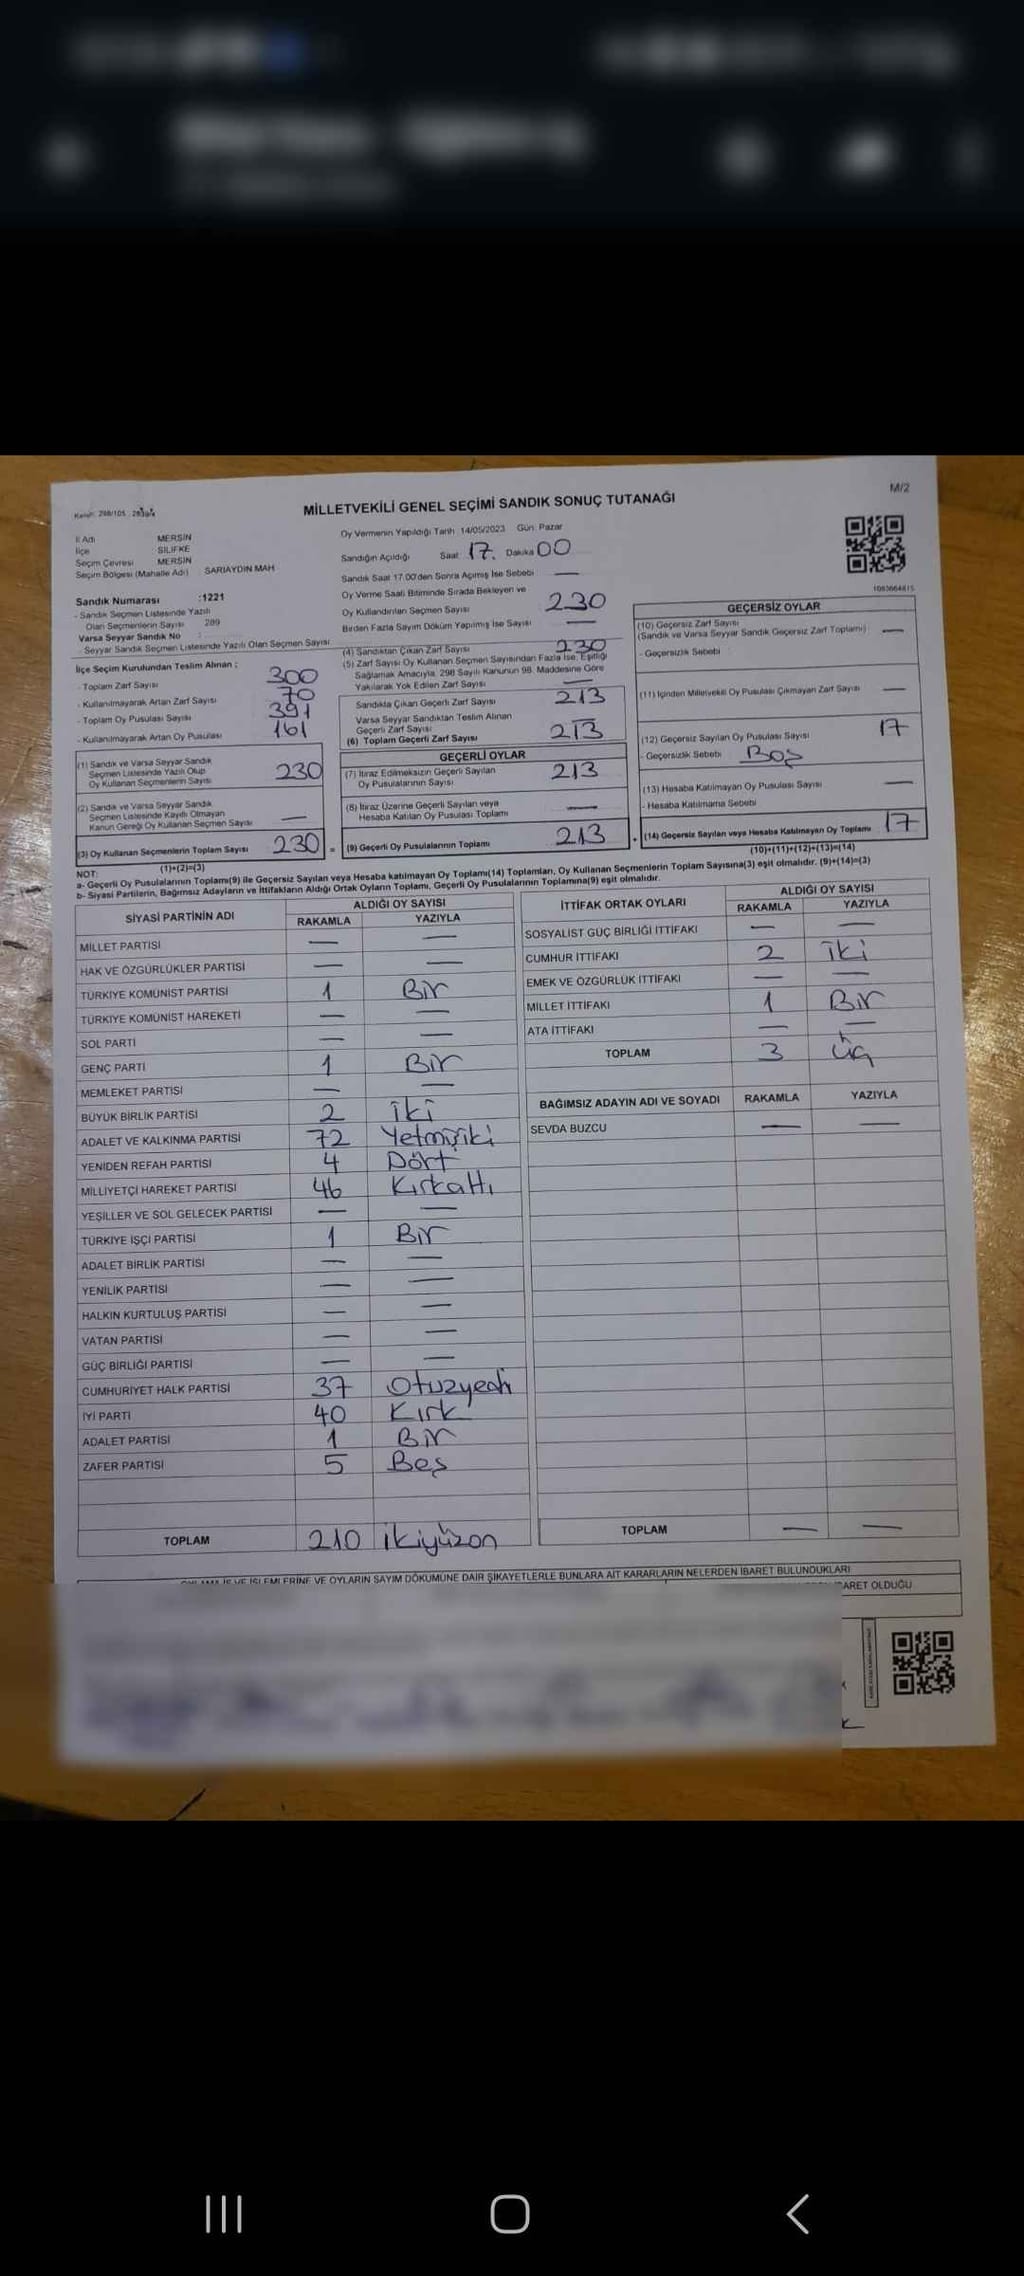 M/2
MİLLETVEKİLİ GENEL SEÇİMİ SANDIK SONUÇ TUTANAĞI
İl Adı MERSİN
İlçe SİLİFKE
Seçim Çevresi MERSİN
Seçim Bölgesi (Mahalle Adı) SARIAYDIN MAH
Sandık Numarası :1221
- Sandık Seçmen Listesinde Yazılı
Olan Seçmenlerin Sayısı 289
Varsa Seyyar Sandık No :
- Seyyar Sandık Seçmen Listesinde Yazılı Olan Seçmen Sayısı
İlçe Seçim Kurulundan Teslim Alınan :
- Toplam Zarf Sayısı 300
- Kullanılmayarak Artan Zarf Sayısı 70
- Toplam Oy Pusulası Sayısı 391
- Kullanılmayarak Artan Oy Pusulası 161
(1) Sandık ve Varsa Seyyar Sandık
Seçmen Listesinde Yazılı Olup
Oy Kullanan Seçmenlerin Sayısı 230
(2) Sandık ve Varsa Seyyar Sandık
Seçmen Listesinde Kayıtlı Olmayan
Kanun Gereği Oy Kullanan Seçmen Sayısı —
(3) Oy Kullanan Seçmenlerin Toplam Sayısı 230 =
(1)+(2)=(3)
Oy Vermenin Yapıldığı Tarih 14/05/2023 Gün: Pazar
Sandığın Açıldığı Saat 17. Dakika 00
Sandık Saat 17.00'den Sonra Açılmış İse Sebebi —
Oy Verme Saati Bitiminde Sırada Bekleyen ve
Oy Kullandırılan Seçmen Sayısı 230
Birden Fazla Sayım Döküm Yapılmış İse Sayısı —
(4) Sandıktan Çıkan Zarf Sayısı 230
(5) Zarf Sayısı Oy Kullanan Seçmen Sayısından Fazla İse, Eşitliği
Sağlamak Amacıyla, 298 Sayılı Kanunun 98. Maddesine Göre
Yakılarak Yok Edilen Zarf Sayısı —
Sandıkta Çıkan Geçerli Zarf Sayısı 213
Varsa Seyyar Sandıktan Teslim Alınan
Geçerli Zarf Sayısı —
(6) Toplam Geçerli Zarf Sayısı 213
GEÇERLİ OYLAR
(7) İtiraz Edilmeksizin Geçerli Sayılan
Oy Pusulalarının Sayısı 213
(8) İtiraz Üzerine Geçerli Sayılan veya
Hesaba Katılan Oy Pusulası Toplamı —
(9) Geçerli Oy Pusulalarının Toplamı 213 +
1083664815
GEÇERSİZ OYLAR
(10) Geçersiz Zarf Sayısı
(Sandık ve Varsa Seyyar Sandık Geçersiz Zarf Toplamı) —
- Geçersizlik Sebebi
(11) İçinden Milletvekili Oy Pusulası Çıkmayan Zarf Sayısı —
(12) Geçersiz Sayılan Oy Pusulası Sayısı 17
- Geçersizlik Sebebi Boş
(13) Hesaba Katılmayan Oy Pusulası Sayısı —
- Hesaba Katılmama Sebebi
(14) Geçersiz Sayılan veya Hesaba Katılmayan Oy Toplamı 17
(10)+(11)+(12)+(13)=(14)
NOT:
a- Geçerli Oy Pusulalarının Toplamı(9) ile Geçersiz Sayılan veya Hesaba katılmayan Oy Toplamı(14) Toplamları, Oy Kullanan Seçmenlerin Toplam Sayısına(3) eşit olmalıdır. (9)+(14)=(3)
b- Siyasi Partilerin, Bağımsız Adayların ve İttifakların Aldığı Ortak Oyların Toplamı, Geçerli Oy Pusulalarının Toplamına(9) eşit olmalıdır.
SİYASİ PARTİNİN ADI ALDIĞI OY SAYISI
RAKAMLA YAZIYLA
MİLLET PARTİSİ — —
HAK VE ÖZGÜRLÜKLER PARTİSİ — —
TÜRKİYE KOMÜNİST PARTİSİ 1 Bir
TÜRKİYE KOMÜNİST HAREKETİ — —
SOL PARTİ — —
GENÇ PARTİ 1 Bir
MEMLEKET PARTİSİ — —
BÜYÜK BİRLİK PARTİSİ 2 İki
ADALET VE KALKINMA PARTİSİ 72 Yetmişiki
YENİDEN REFAH PARTİSİ 4 Dört
MİLLİYETÇİ HAREKET PARTİSİ 46 Kırkaltı
YEŞİLLER VE SOL GELECEK PARTİSİ — —
TÜRKİYE İŞÇİ PARTİSİ 1 Bir
ADALET BİRLİK PARTİSİ — —
YENİLİK PARTİSİ — —
HALKIN KURTULUŞ PARTİSİ — —
VATAN PARTİSİ — —
GÜÇ BİRLİĞİ PARTİSİ — —
CUMHURİYET HALK PARTİSİ 37 Otuzyedi
İYİ PARTİ 40 Kırk
ADALET PARTİSİ 1 Bir
ZAFER PARTİSİ 5 Beş
TOPLAM 210 İkiyüzon
İTTİFAK ORTAK OYLARI ALDIĞI OY SAYISI
RAKAMLA YAZIYLA
SOSYALİST GÜÇ BİRLİĞİ İTTİFAKI — —
CUMHUR İTTİFAKI 2 İki
EMEK VE ÖZGÜRLÜK İTTİFAKI — —
MİLLET İTTİFAKI 1 Bir
ATA İTTİFAKI — —
TOPLAM 3 Üç
BAĞIMSIZ ADAYIN ADI VE SOYADI RAKAMLA YAZIYLA
SEVDA BUZCU — —
TOPLAM — —
İŞLEMLERİNE VE OYLARIN SAYIM DÖKÜMÜNE DAİR ŞİKAYETLERLE BUNLARA AİT KARARLARIN NELERDEN İBARET BULUNDUKLARI
OLDUĞU